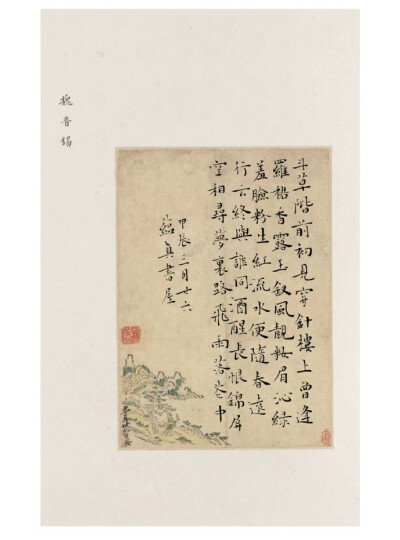 魏晉錫
斗草階前初見穿針樓上曾逢
羅裙香露玉釵風靚妝眉沁綠
羞臉粉生紅流水便隨春遠
行云終與誰同酒醒長恨錦屏
空相尋夢裏路飛雨落花中
甲辰三月廿六
蘊真書屋